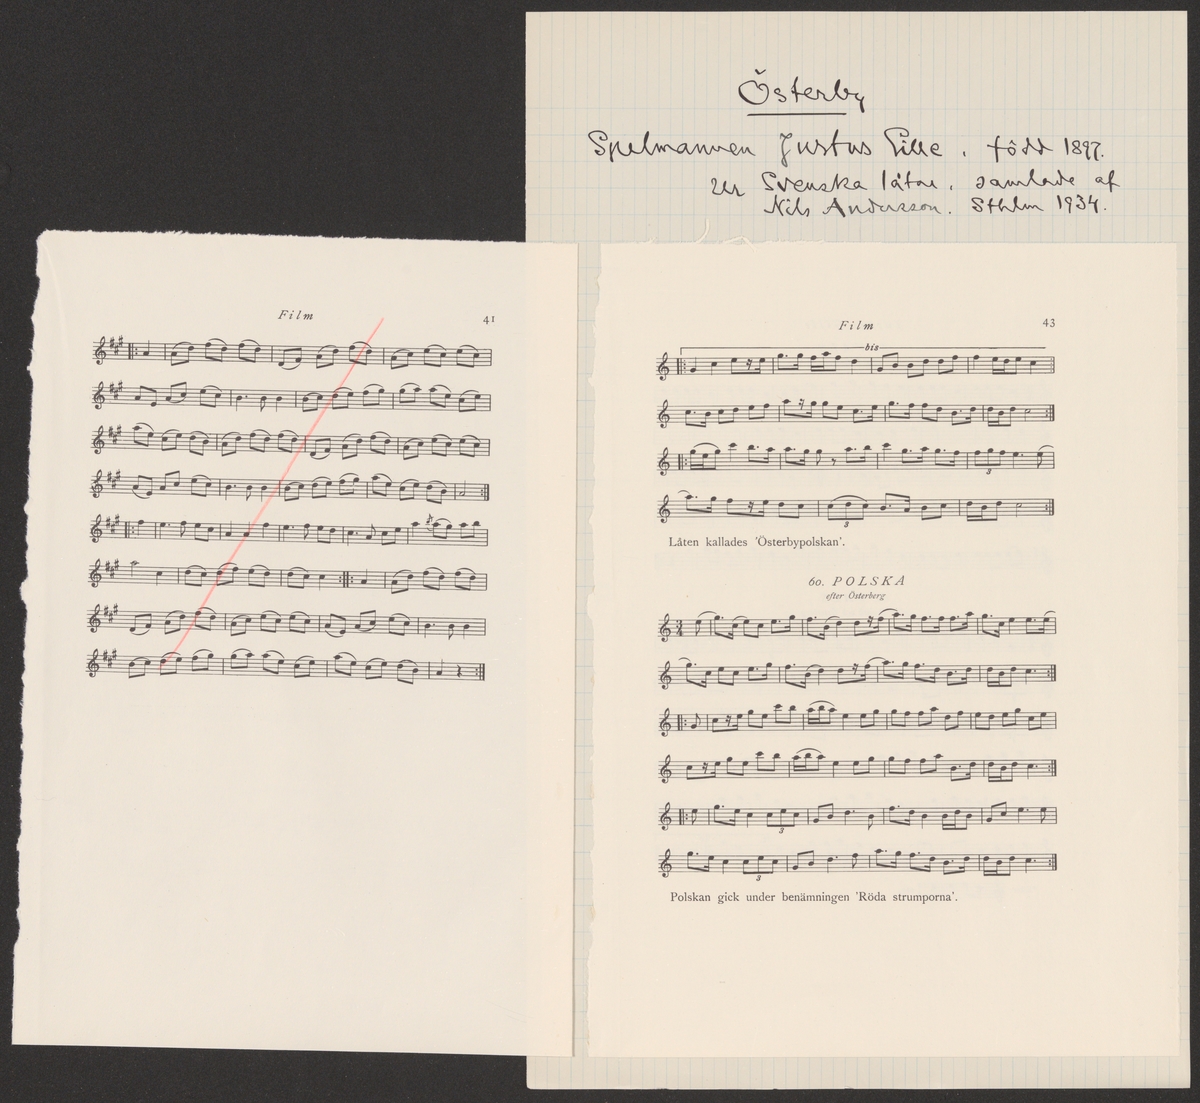 Österby
Spelmannen Justus Gille. född 1897.
ur Svenska låtar. samlade af
Nils Andersson. Sthlm 1934.
Film 41
Film 43
bis
3
3
Låten kallades 'Österbypolskan'.
60. POLSKA
efter Österberg
3
4
3
3
Polskan gick under benämningen 'Röda strumporna'.